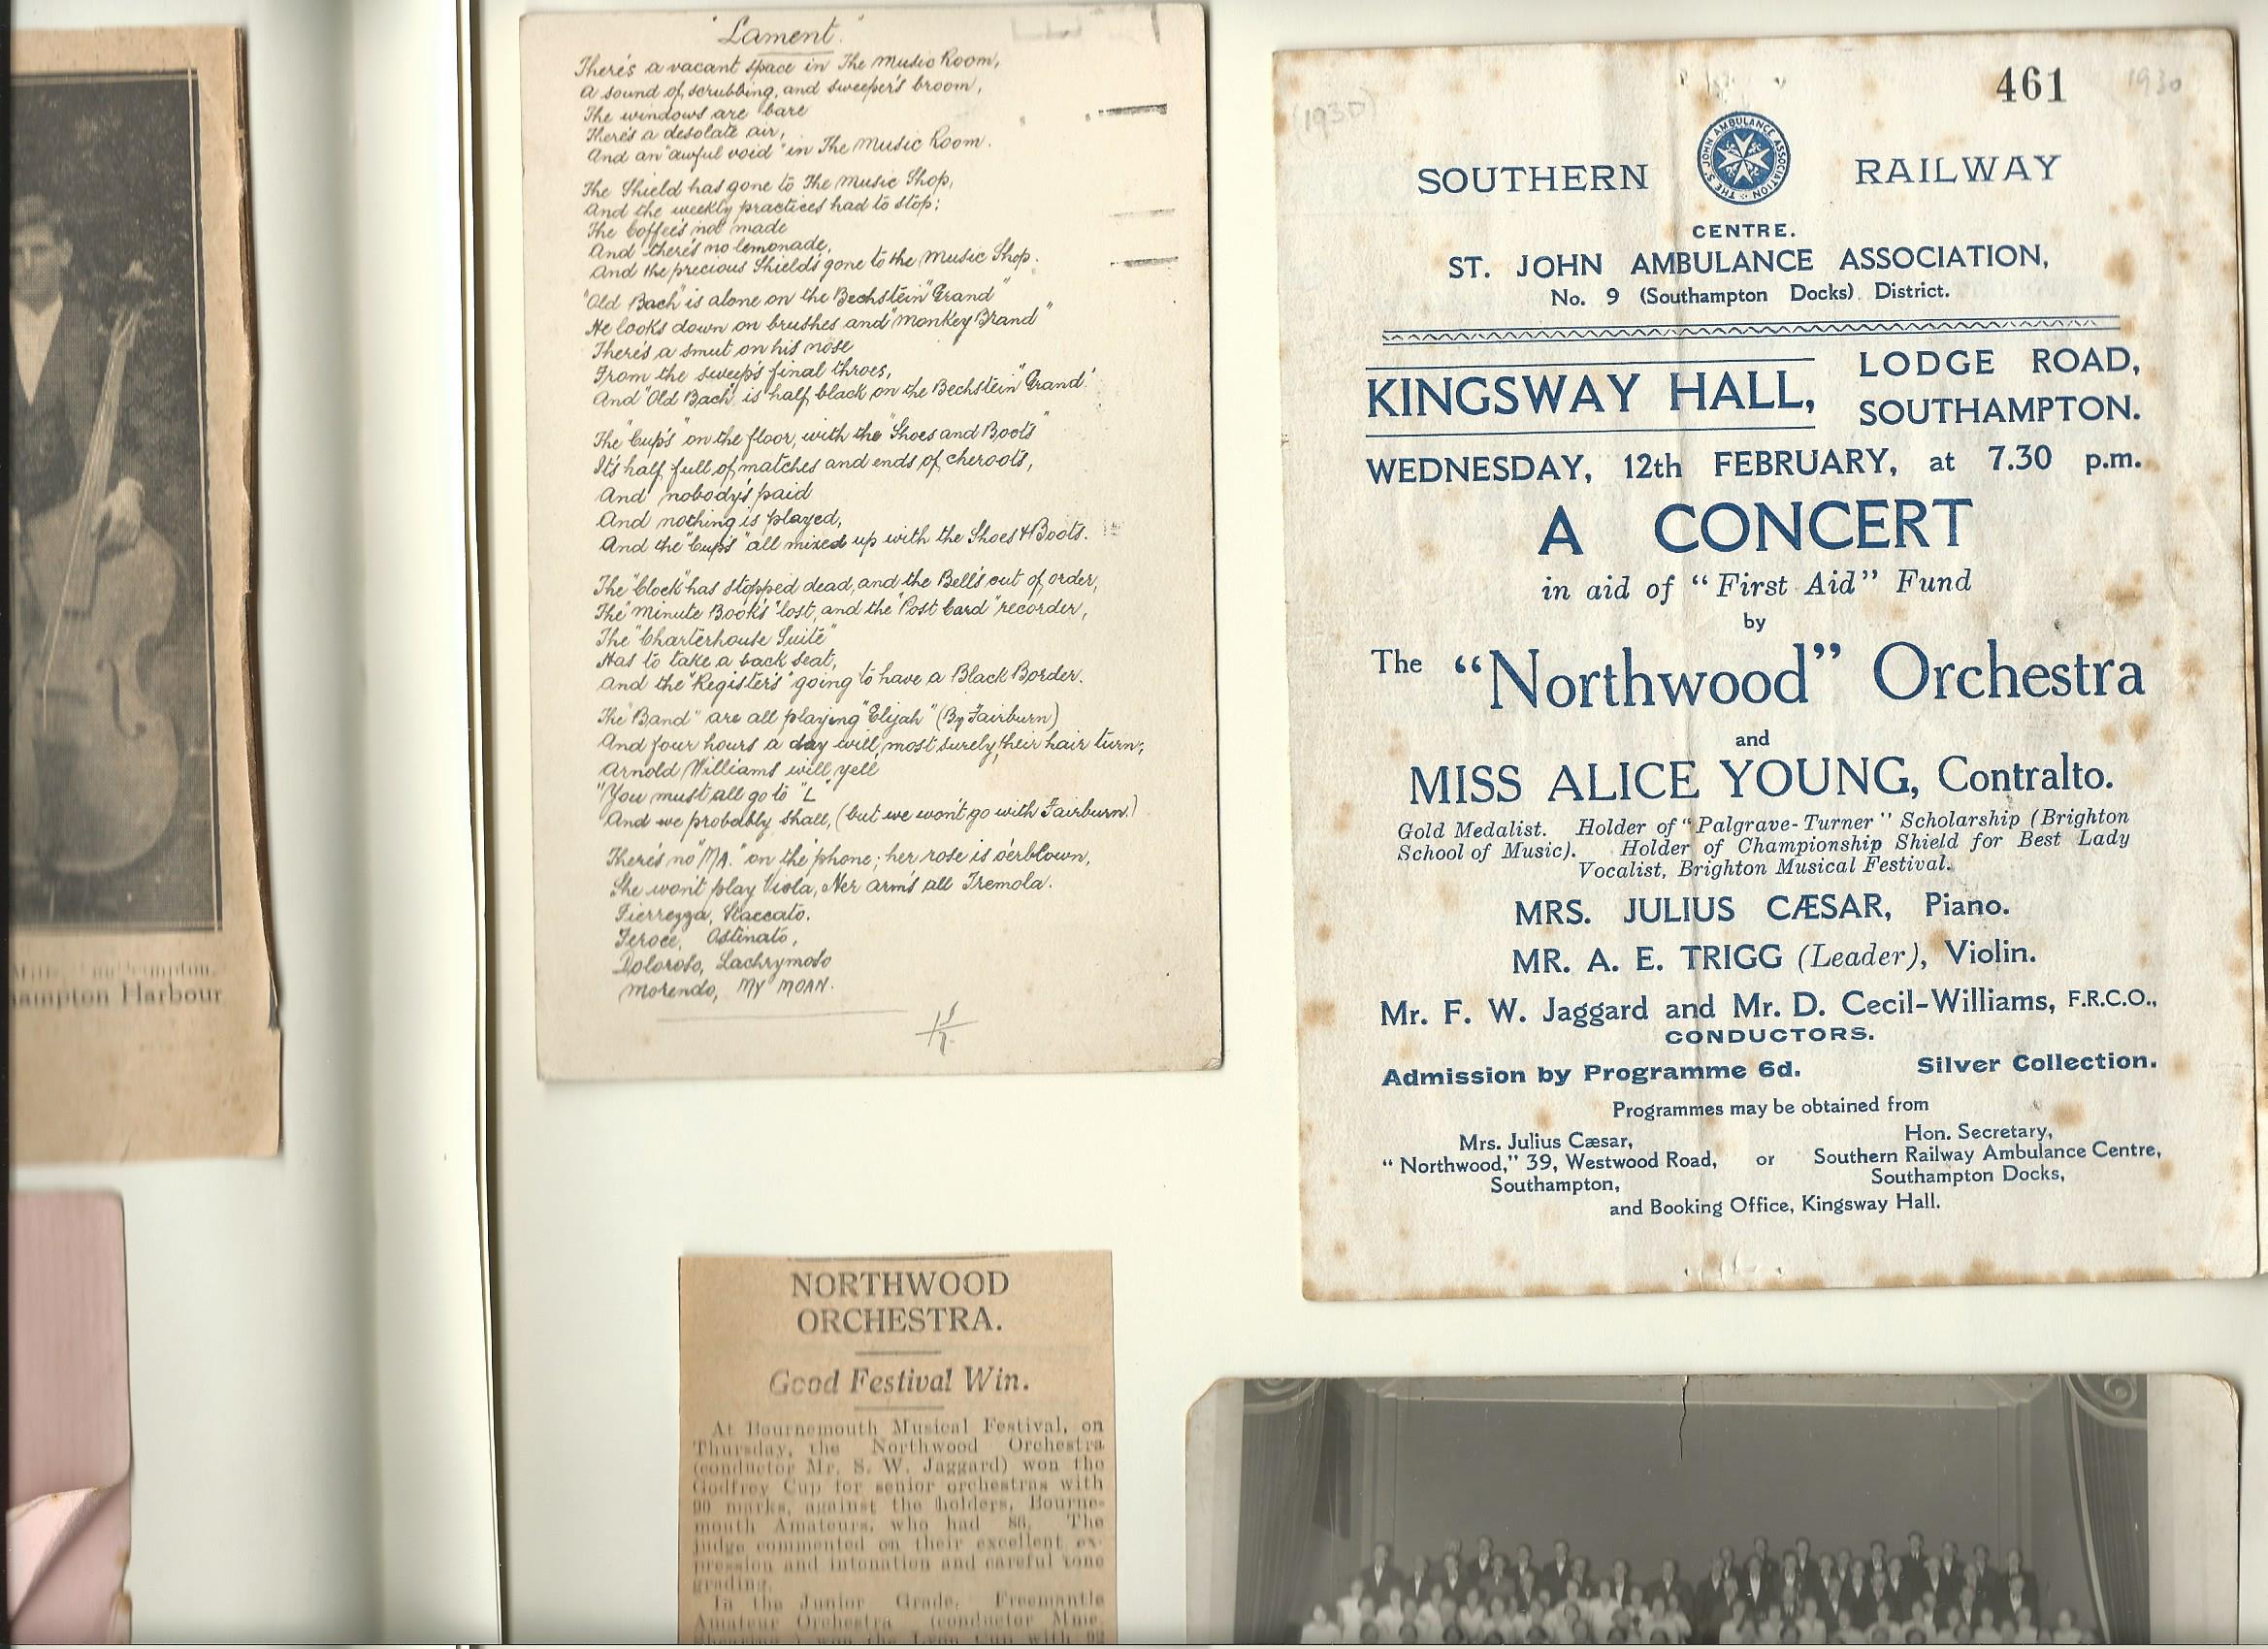 hampton Harbour
"Lament"
There's a vacant space in The Music Room,
A sound of scrubbing, and sweeper's broom,
The windows are bare
There's a desolate air,
And an "awful void" in The Music Room.
The Shield has gone to The Music Shop,
And the weekly practices had to stop;
The Coffee's not made
And there's no lemonade,
And the precious Shield's gone to the Music Shop.
"Old Bach" is alone on the Bechstein "Grand"
He looks down on brushes and "Monkey Brand"
There's a smut on his nose
From the sweep's final throes,
And "Old Bach" is half black on the Bechstein "Grand".
The "Cup's" on the floor, with the "Shoes and Boots"
It's half full of matches and ends of cheroots,
And nobody's paid
And nothing is played,
And the "Cup's" all mixed up with the Shoes & Boots.
The "Clock" has stopped dead, and the Bell's out of order,
The "Minute Book's" lost, and the "Post Card" recorder,
The "Charterhouse Suite"
Has to take a back seat,
And the "Register's" going to have a Black Border.
The "Band" are all playing "Elijah" (By Fairburn)
And four hours a day will, most surely, their hair turn;
Arnold Williams will yell
"You must all go to "L"
And we probably shall, (but we won't go with Fairburn.)
There's no "MA." on the 'phone; her rose is o'erblown,
She won't play Viola, Her arm's all Tremola.
Fierrezza, Staccato.
Feroce, Ostinato,
Doloroso, Lachrymoso
Morendo, MY MOAN.
NORTHWOOD
ORCHESTRA.
Good Festival Win.
At Bournemouth Musical Festival, on
Thursday, the Northwood Orchestra
(conductor Mr. S. W. Jaggard) won the
Godfrey Cup for senior orchestras with
90 marks, against the holders, Bourne-
mouth Amateurs, who had 86. The
judge commented on their excellent ex-
pression and intonation and careful tone
grading.
In the Junior Grade, Freemantle
Amateur Orchestra (conductor Mme.
won the Lyon Cup with 92
461
(1930)
1930
THE ST. JOHN AMBULANCE ASSOCIATION
SOUTHERN RAILWAY
CENTRE.
ST. JOHN AMBULANCE ASSOCIATION,
No. 9 (Southampton Docks) District.
KINGSWAY HALL, LODGE ROAD,
SOUTHAMPTON.
WEDNESDAY, 12th FEBRUARY, at 7.30 p.m.
A CONCERT
in aid of "First Aid" Fund
by
The "Northwood" Orchestra
and
MISS ALICE YOUNG, Contralto.
Gold Medalist. Holder of "Palgrave-Turner" Scholarship (Brighton
School of Music). Holder of Championship Shield for Best Lady
Vocalist, Brighton Musical Festival.
MRS. JULIUS CÆSAR, Piano.
MR. A. E. TRIGG (Leader), Violin.
Mr. F. W. Jaggard and Mr. D. Cecil-Williams, F.R.C.O.,
CONDUCTORS.
Admission by Programme 6d. Silver Collection.
Programmes may be obtained from
Mrs. Julius Cæsar,
"Northwood," 39, Westwood Road,
Southampton,
or
Hon. Secretary,
Southern Railway Ambulance Centre,
Southampton Docks,
and Booking Office, Kingsway Hall.